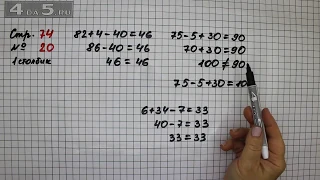 4DA5.RU
Стр. 74
№ 20
1 столбик
82+4-40=46
86-40=46
46=46
75-5+30=90
70+30=90
100≠90
75-5+30=10
6+34-7=33
40-7=33
33=33